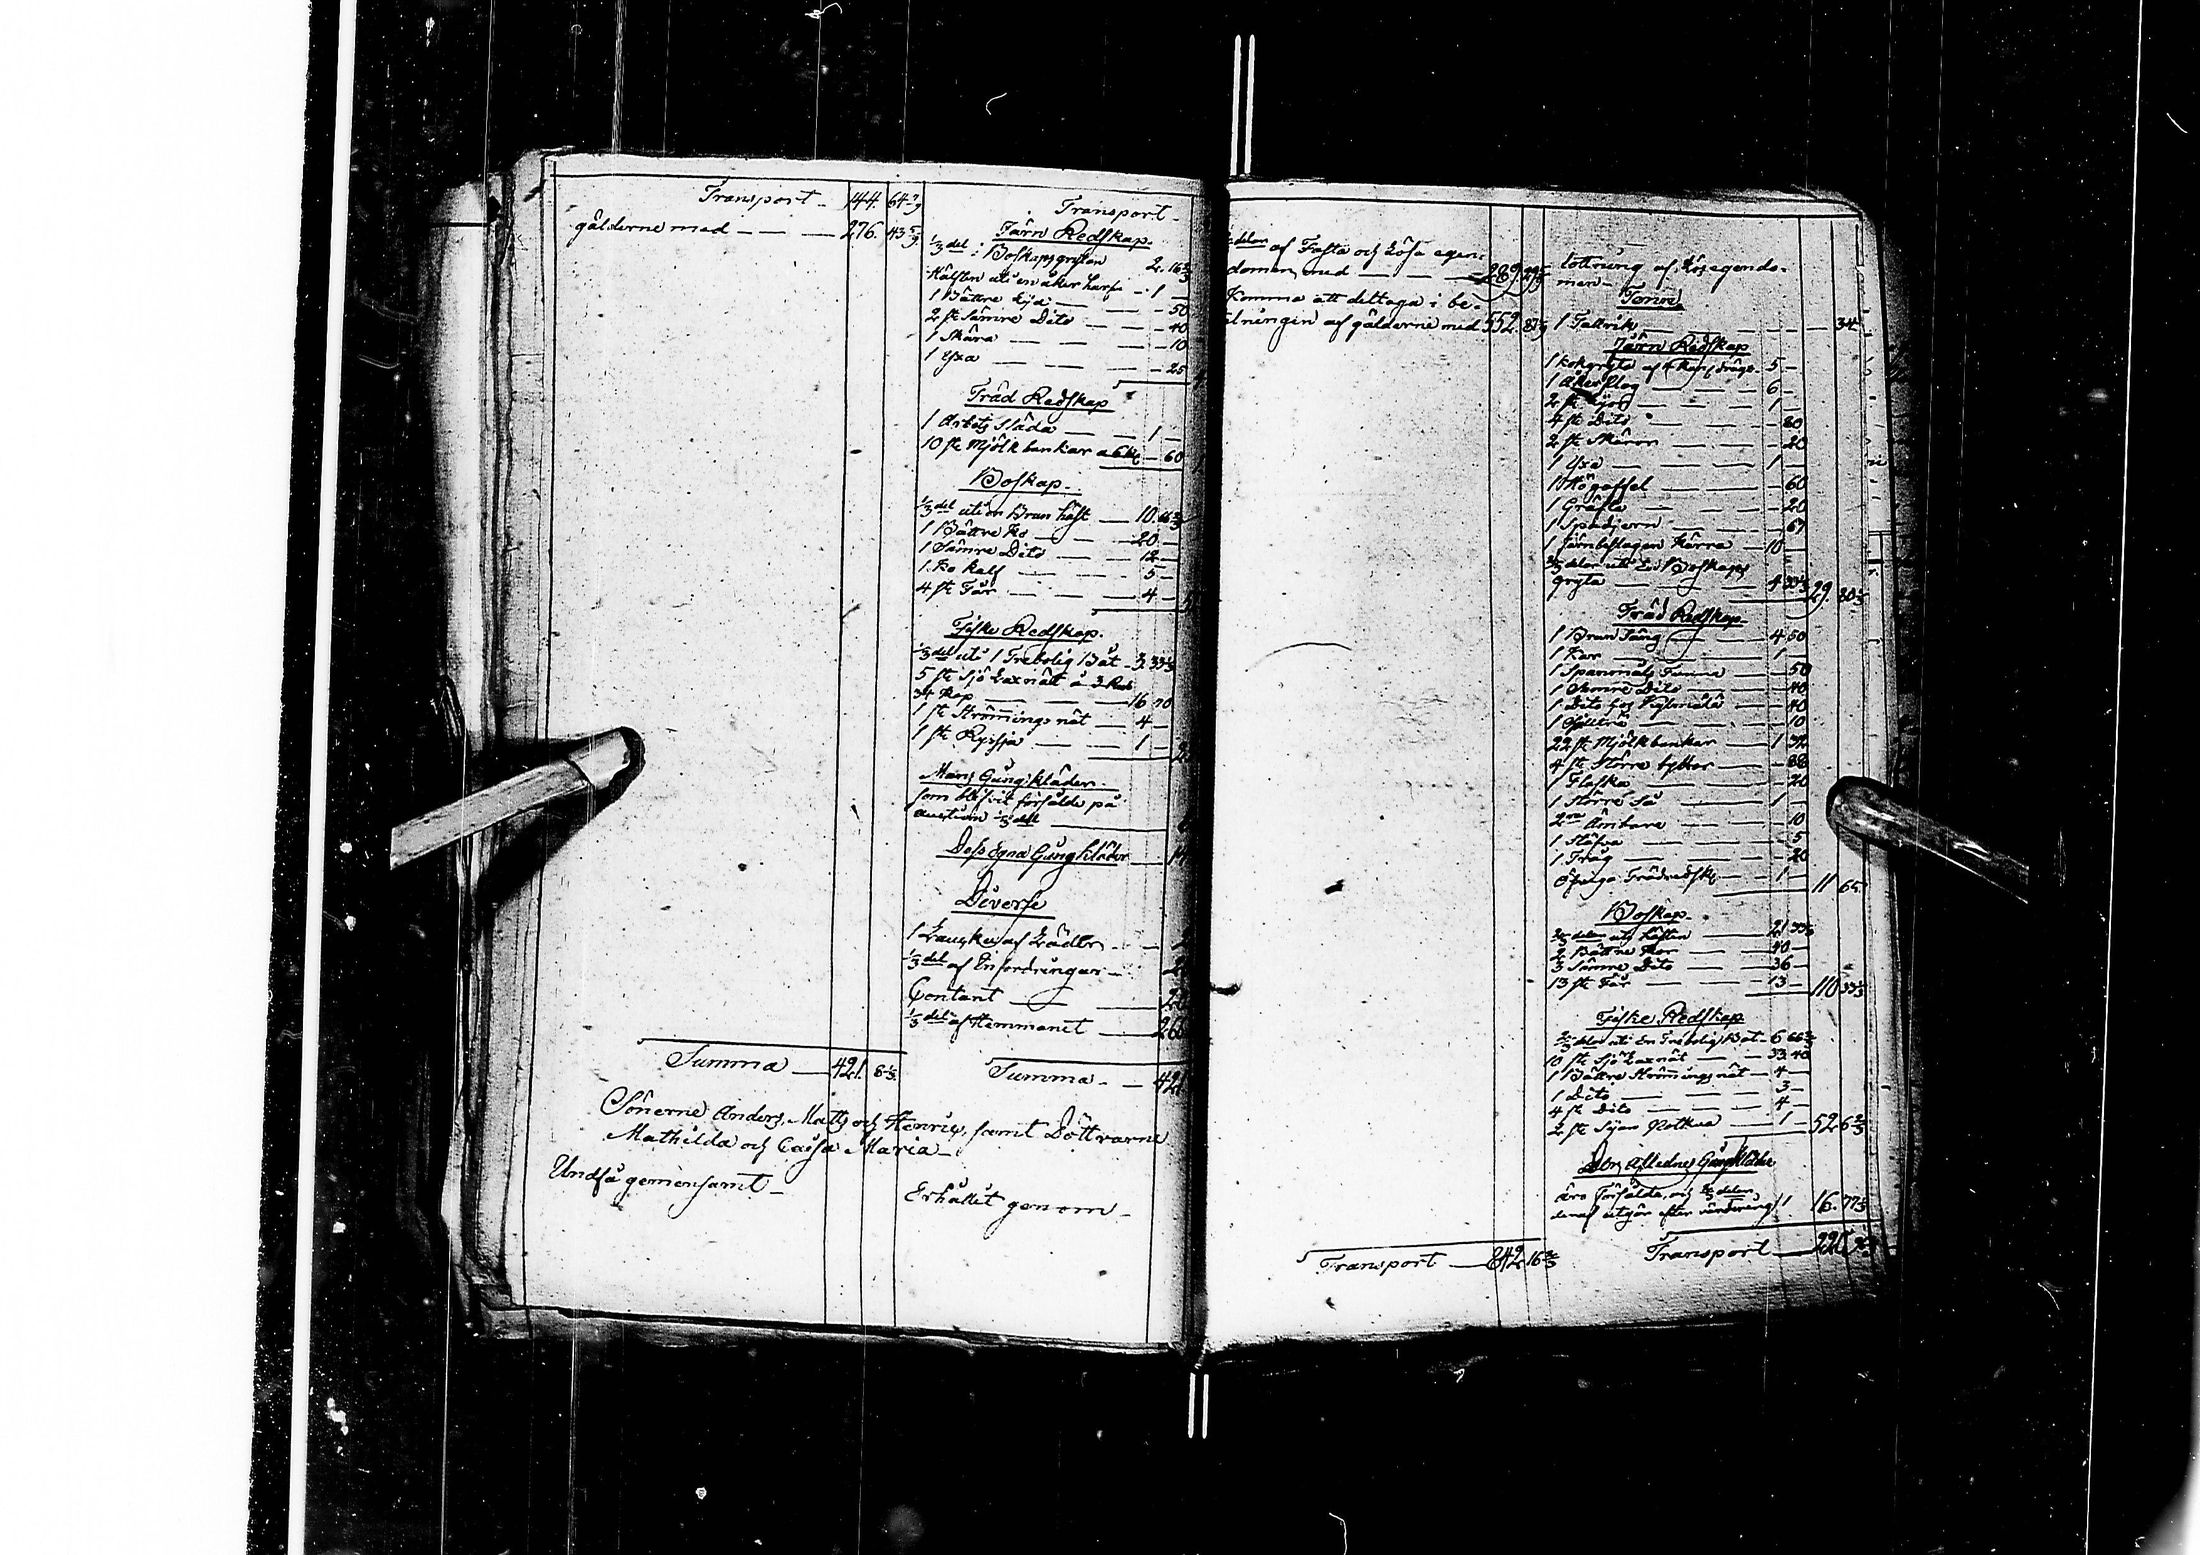 Transport - 144. 64 7/9
gälderne med — — — 276. 43 5/9
Summa — 421. 8 1/3
Transport -
Järn Redskap.
1/3 del i Boskapsgrytan 2. 16 2/3
Hälften uti en åker harf - 1 —
1 Bättre Lya — — — 50
2 st Sämre Dito — — — 40
1 Skära — — — 10
1 Yxa — — — 25
Träd Redskap
1 Arbets Släda — — 1 —
10 st Mjölkbunkar a 6 k — 60
Boskap.
1/3 del uti en Brun häst — 10. 66 2/3
1 Bättre Ko — — 20 —
1 Sämre Dito — — 12 —
1 Ko kalf — — 5 —
4 st Får — — 4 —
Fiske Redskap.
1/3 del uti 1 Trebolig Båt - 3. 33 1/3
5 st Sjö Laxnät à 3 Rub
34 Kop — — 16 70
1 st Strömmings nät — 4 —
1 st Ryssja — — 1 —
Mans Gångkläder
som blifvit försålde på
auction 1/3 del
Dess Egna Gångkläder
Diverse
af Läder
1/3 del af Enfordringar —
Contant —
1/3 del af Hemmanet —
Summa - —
Sönerne Anders, Matts och Henric, samt Döttrarne
Mathilda och Caisa Maria -
Undfå gemensamt -
Erhållit genom -
af Fasta och Lösa egen-
domen, med — — — 289. 29 5/9
Komma att deltaga i be-
talningen af gälderne med 552. 87 1/9
Transport — 842. 16 2/3
lottning af Lösegendo-
men -
Tenn
1 Tallrik — — — 34
Järn Redskap
1 Kokgryta af 4 Kan, drägt 5 —
1 Åker Plog — — 6 —
2 st Lyor — — 1 —
4 st Dito — — 80
2 st Skäror — — 20
1 Yxa — — 1 —
1 Högaffel — — 60
1 Gräfta — — 20
1 Spadjern — — 67
1 Järnbeslagen Kärra — 10 —
2/3 delar uti En Boskaps
gryta — — 4 33 1/3 29. 80 1/3
Träd Redskap.
1 Brun Säng — — 4 50
1 Kar — — 1 —
1 Spanmåls Tunna — 50
1 Sämre Dito — — 40
1 Dito — 40
— — 10
22 st Mjölkbunkar — 1 32
4 st Större byttor — — 88
1 Flaska — — 20
1 Större Så — — 1 —
2ne Ämbare — — 10
1 Stäfva — — 5
1 Tråg — — 20
Öfriga Trädredsk. — 1 — 11 65.
Boskap.
2/3 delar uti hästen — 21 33 1/3
2 Bättre Kor — — 40 —
3 Sämre Dito — — 36 —
13 st Får — — 13 — 110 33 1/3
Fiske Redskap
2/3 delar uti En Trebolig Båt - 6 66 2/3
10 st Sjö Laxnät — — 33 40
1 Bättre Strömmings nät — 4 —
1 Dito — — 3 —
4 st Dito — — 4 —
2 st — 1 — 52. 6 2/3
Den Aflednes Gångkläder
äro försålde, och 2/3 delar
deraf utgör efter värdering 16. 77 1/3
Transport —